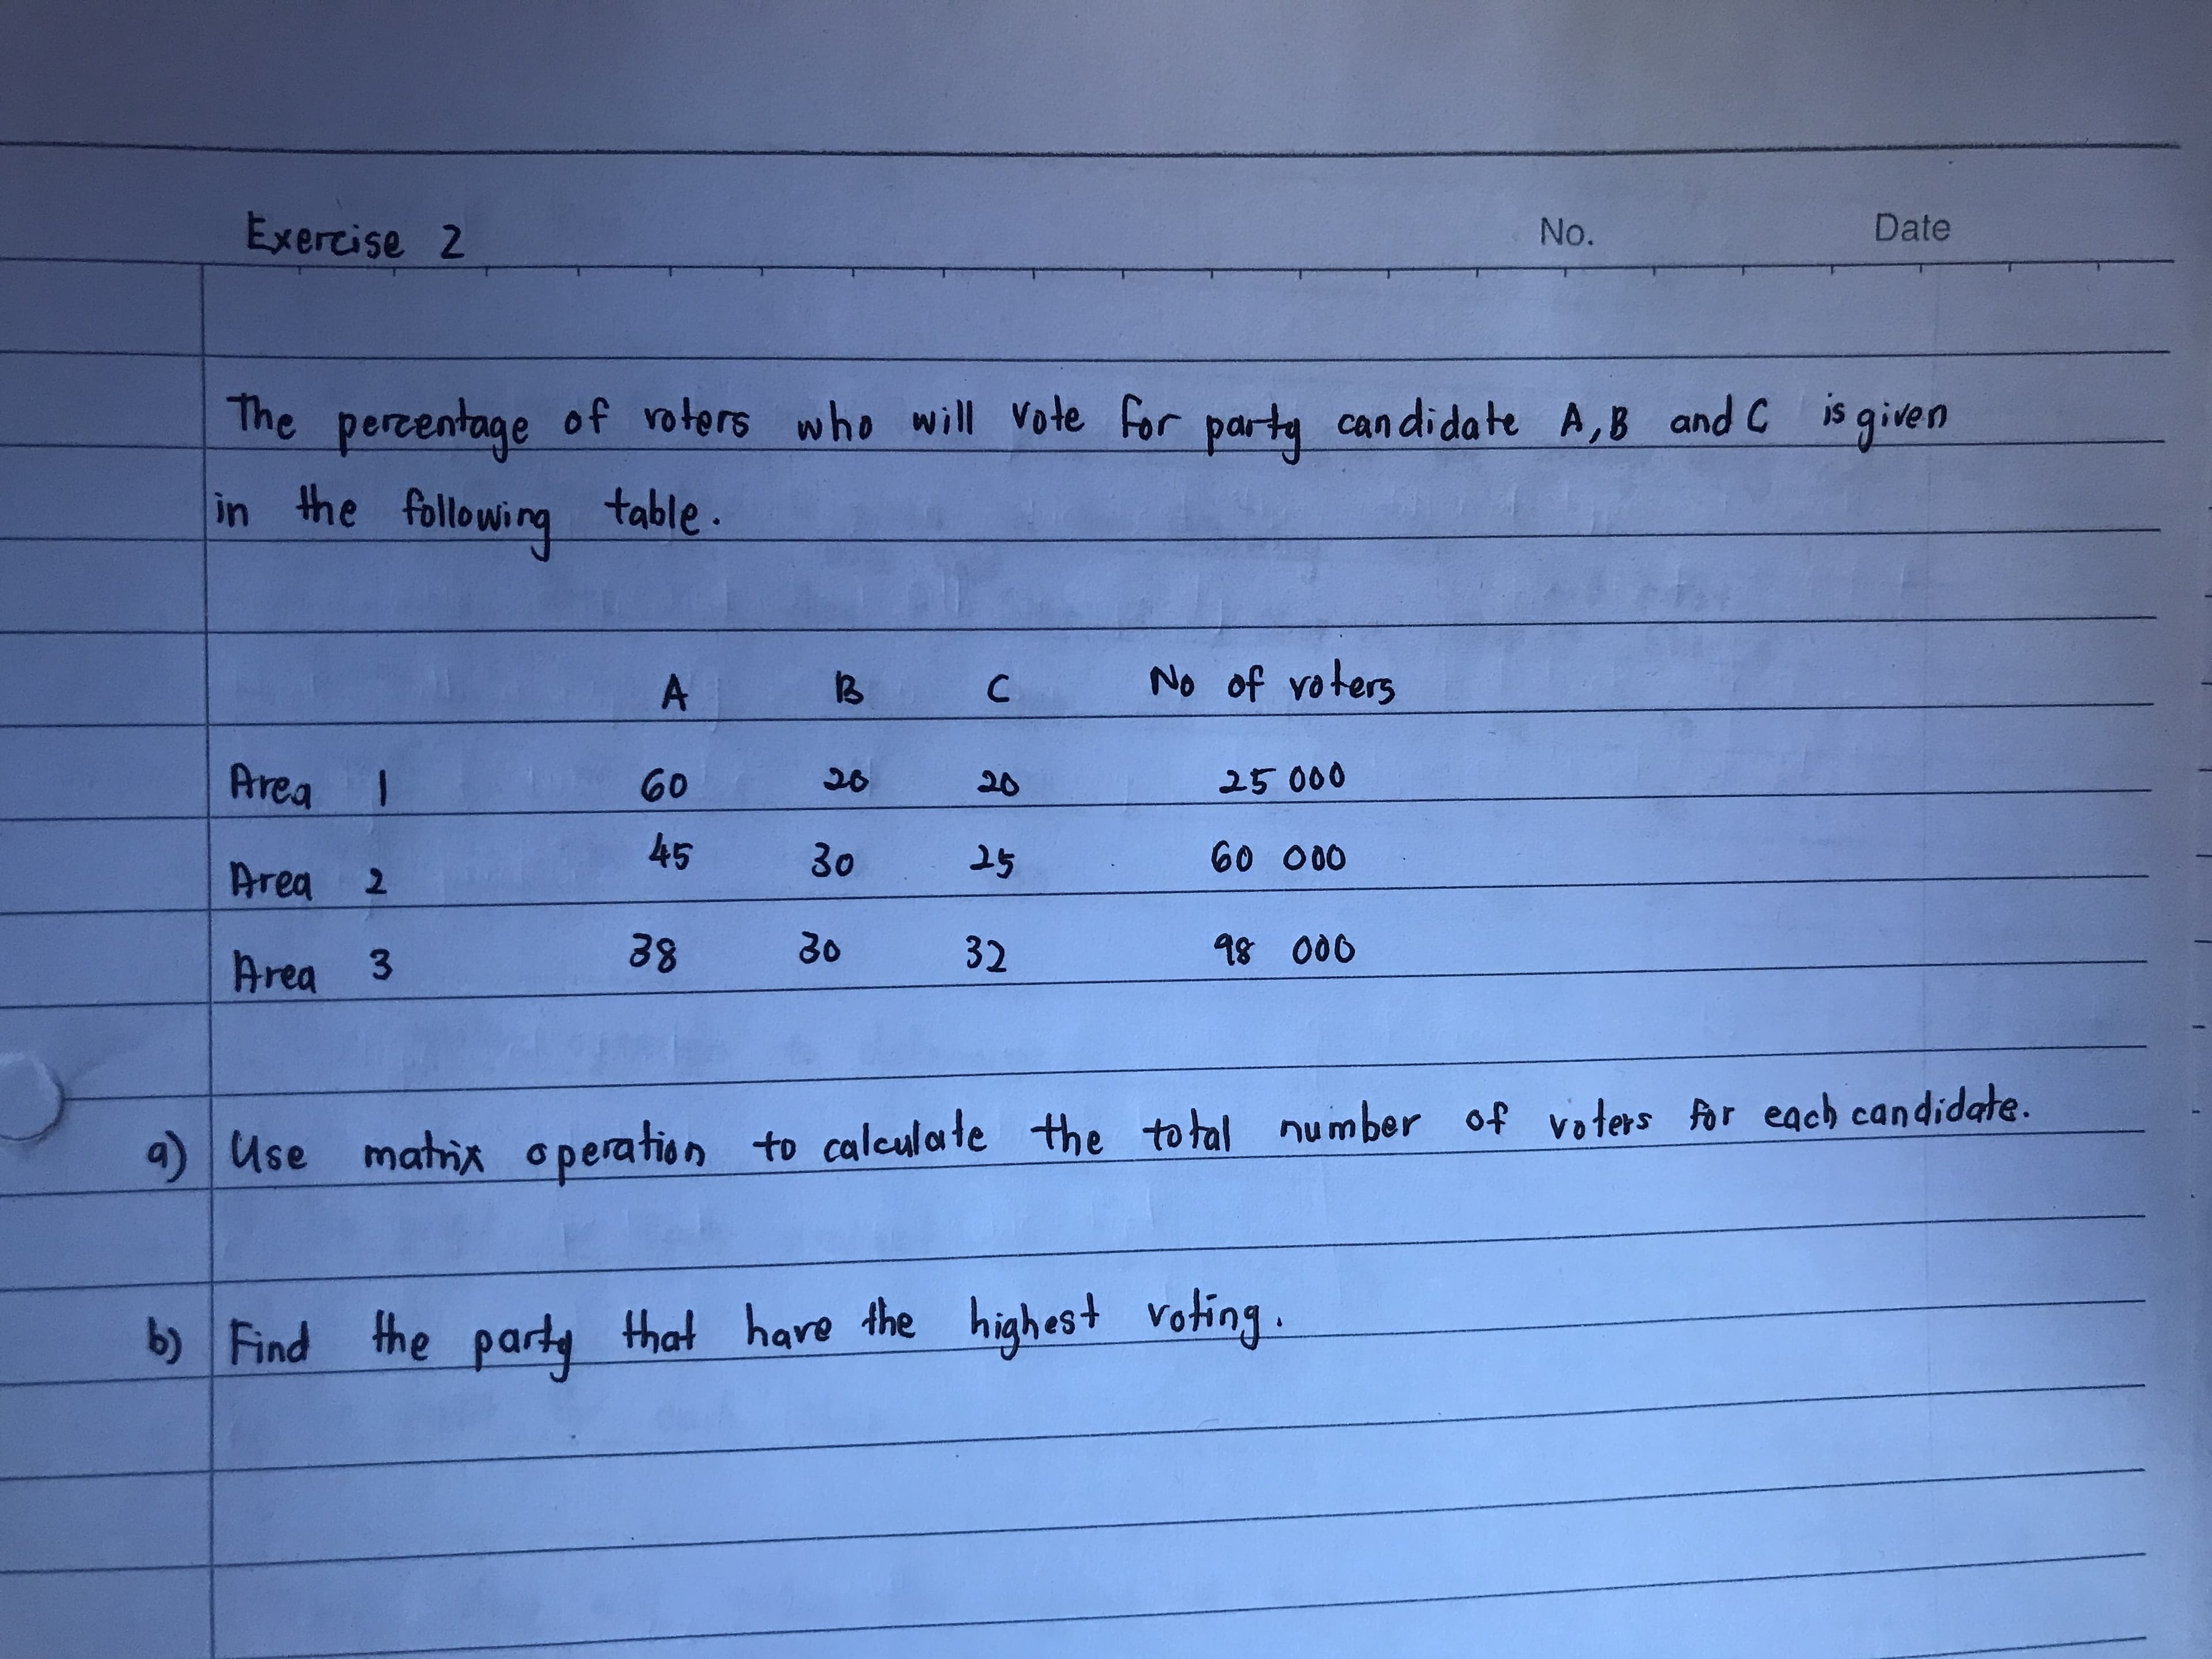 Exercise 2 No. Date
The percentage of voters who will vote for party candidate A, B and C is given
in the following table.
A B C No of voters
Area 1 60 20 20 25 000
Area 2 45 30 25 60 000
Area 3 38 30 32 98 000
a) Use matrix operation to calculate the total number of voters for each candidate.
b) Find the party that have the highest voting.